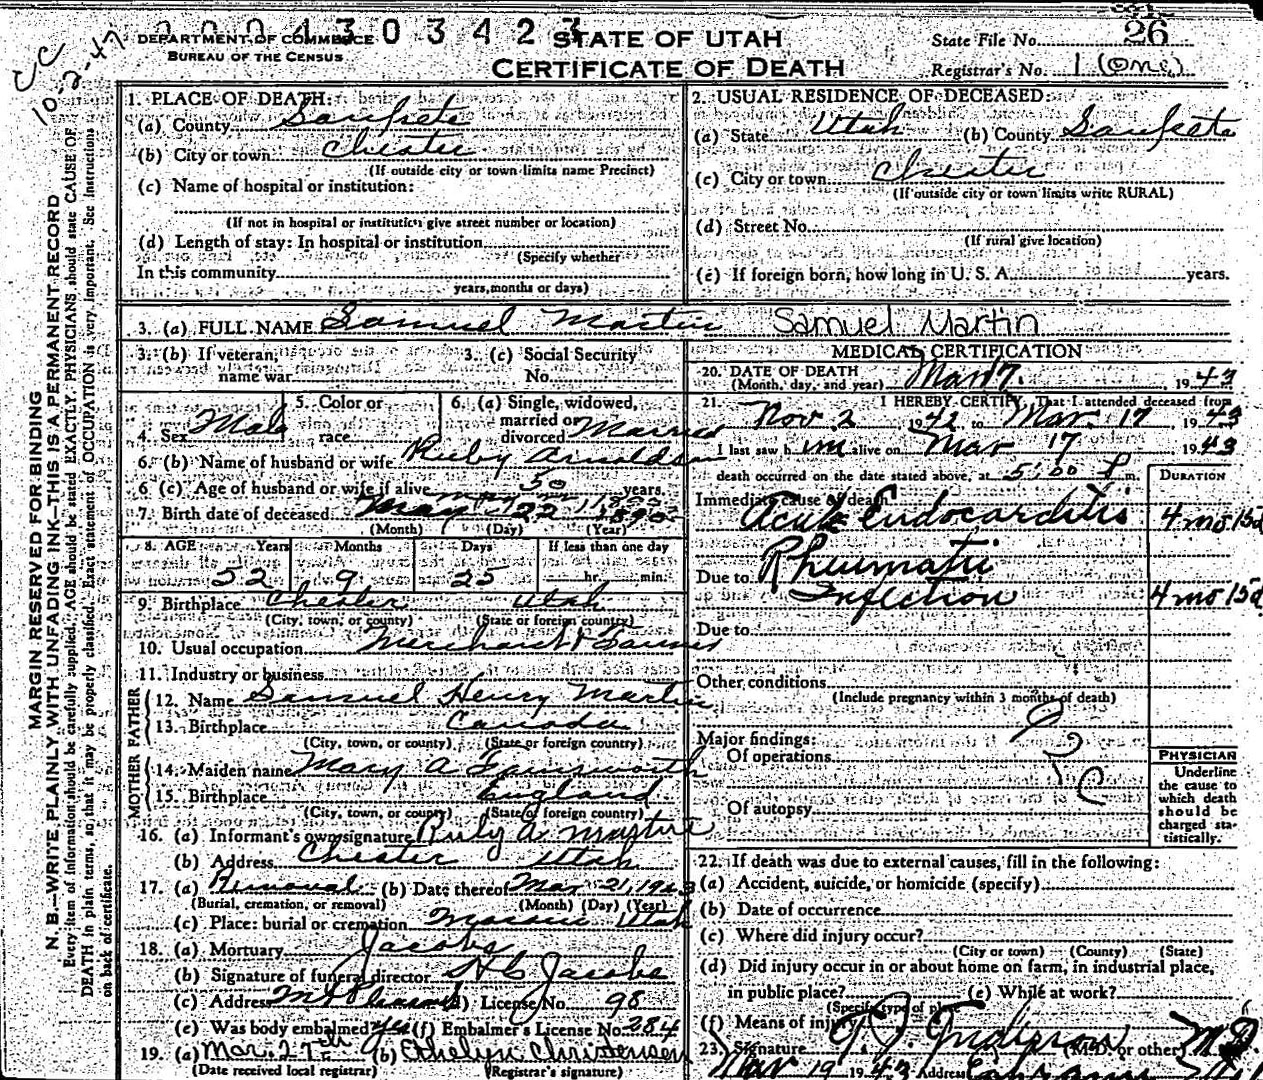 2 0 0 4 3 0 3 4 2 3
CC 10-2-47
DEPARTMENT OF COMMERCE
BUREAU OF THE CENSUS
STATE OF UTAH
CERTIFICATE OF DEATH
State File No. 26
Registrar's No. 1 (One)
MARGIN RESERVED FOR BINDING
N. B.—WRITE PLAINLY WITH UNFADING INK—THIS IS A PERMANENT RECORD
Every item of information should be carefully supplied. AGE should be stated EXACTLY. PHYSICIANS should state CAUSE OF
DEATH in plain terms, so that it may be properly classified. Exact statement of OCCUPATION is very important. See Instructions
on back of certificate.
1. PLACE OF DEATH:
(a) County Sanpete
(b) City or town Chester
(If outside city or town limits name Precinct)
(c) Name of hospital or institution:
(If not in hospital or institution give street number or location)
(d) Length of stay: In hospital or institution
(Specify whether
In this community
years, months or days)
2. USUAL RESIDENCE OF DECEASED:
(a) State Utah (b) County Sanpete
(c) City or town Chester
(If outside city or town limits write RURAL)
(d) Street No.
(If rural give location)
(e) If foreign born, how long in U. S. A. years.
3. (a) FULL NAME Samuel Martin Samuel Martin
3. (b) If veteran, name war
3. (c) Social Security No.
4. Sex Male
5. Color or race
6. (a) Single, widowed, married or divorced Married
6. (b) Name of husband or wife Ruby
6 (c) Age of husband or wife if alive 50 years.
7. Birth date of deceased May 22 1890
(Month) (Day) (Year)
8. AGE Years Months Days If less than one day
52 9 25 hr. min.
9. Birthplace Chester Utah
(City, town, or county) (State or foreign country)
10. Usual occupation Merchant & Farmer
11. Industry or business
FATHER
12. Name Samuel Henry Martin
13. Birthplace Canada
(City, town, or county) (State or foreign country)
MOTHER
14. Maiden name Mary A Farnsworth
15. Birthplace England
(City, town, or county) (State or foreign country)
16. (a) Informant's own signature Ruby A.
(b) Address Chester Utah
17. (a) Removal (b) Date thereof Mar 21, 1943
(Burial, cremation, or removal) (Month) (Day) (Year)
(c) Place: burial or cremation Utah
18. (a) Mortuary Jacobs
(b) Signature of funeral director Jacobs
(c) Address Mt Pleasant (d) License No. 98
(e) Was body embalmed? yes (f) Embalmer's License No. 284
19. (a) Mar. 27th (b) Ethelyn Christensen
(Date received local registrar) (Registrar's signature)
MEDICAL CERTIFICATION
20. DATE OF DEATH
(Month, day, and year) Mar 17. , 1943
21. I HEREBY CERTIFY, That I attended deceased from
Nov 2 1942 to Mar. 17 1943
I last saw him alive on Mar 17 1943
death occurred on the date stated above, at 5:00 P m.
DURATION
Immediate cause of death
Acute Endocarditis 4 mo 15d
Due to Rheumatic
Infection 4 mo 15d
Due to
Other conditions
(Include pregnancy within 3 months of death)
Major findings:
Of operations
Of autopsy
PHYSICIAN
Underline
the cause to
which death
should be
charged sta-
tistically.
22. If death was due to external causes, fill in the following:
(a) Accident, suicide, or homicide (specify)
(b) Date of occurrence
(c) Where did injury occur?
(City or town) (County) (State)
(d) Did injury occur in or about home on farm, in industrial place,
in public place? (e) While at work?
(Specify type of place)
(f) Means of injury
23. Signature (M.D. or other) M.D.
Mar 19 1943 Address Ephraim